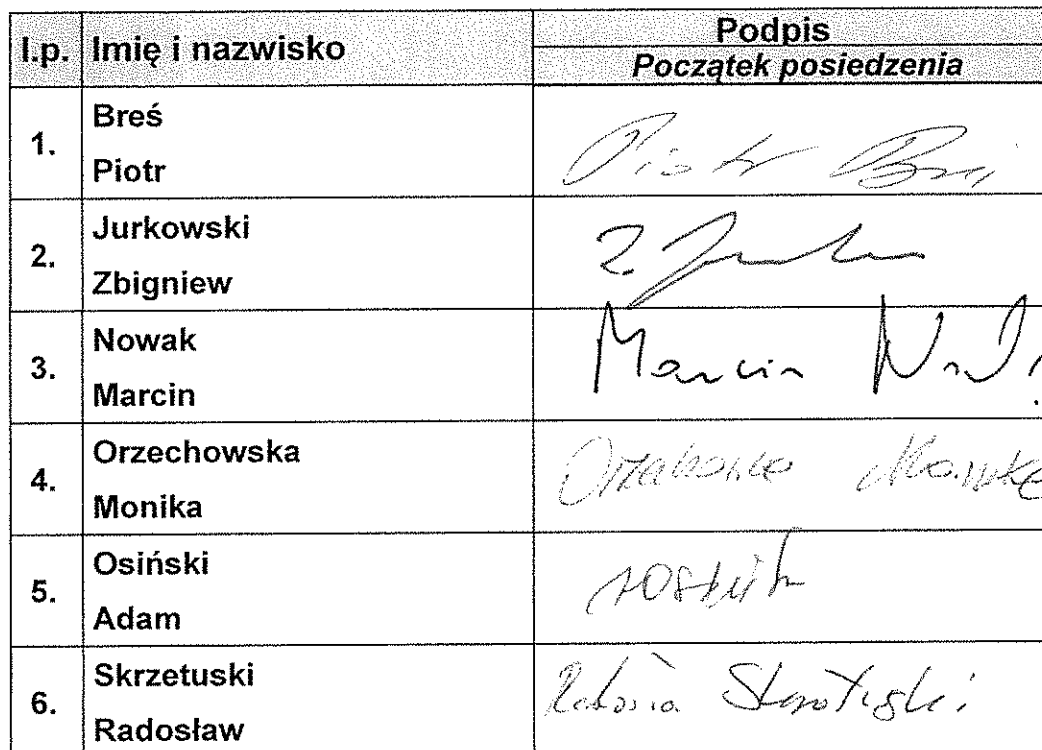 l.p. Imię i nazwisko Podpis
Początek posiedzenia
1. Breś
Piotr
Piotr Breś
2. Jurkowski
Zbigniew
Z Jurk
3. Nowak
Marcin
Marcin
4. Orzechowska
Monika
Orzechowska Monika
5. Osiński
Adam
6. Skrzetuski
Radosław
Skrzetuski